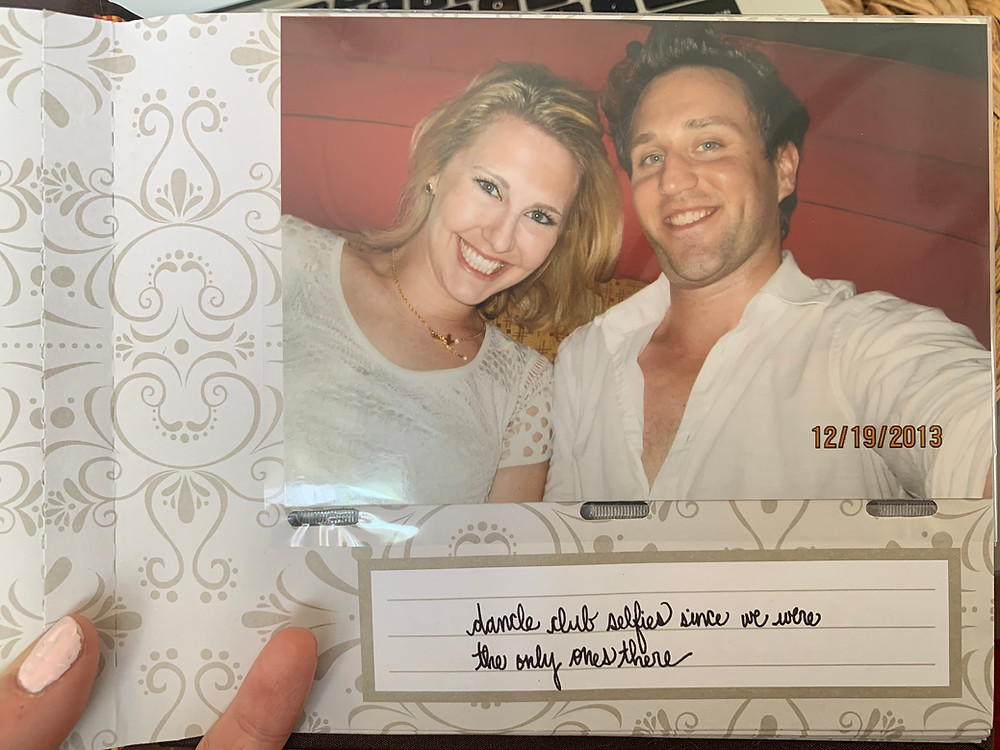 12/19/2013
dancle club selfies since we were
the only ones there